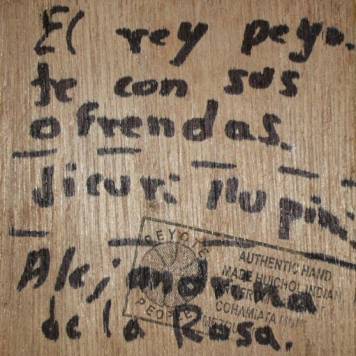 El rey peyo-
te con sus
ofrendas.
Jicuri
Alejandrina
de la Rosa.
PEYOTE
PEOPLE
AUTHENTIC HAND
MADE HUICHOL INDIAN